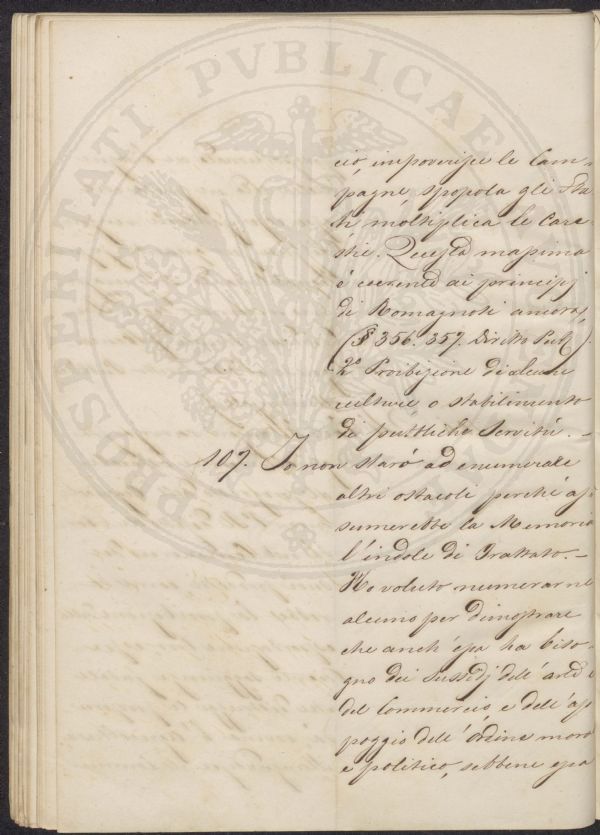 PROSPERITATI PVBLICAE
cio, impoverisce le Cam-
pagne, spopola gli Sta
ti, moltiplica le Care
stie. Questa massima
é coerente ai principj
di Romagnosi ancora,
(§ 356. 357. Diritto Pub.).
2.º Proibizione di alcune
culture, o stabilimento
di pubbliche Servitú. -
107. Io non staró ad enumerare
altri ostacoli perché as
sumerebbe la Memoria
l'indole di Trattato. -
Ho voluto numerarne
alcuno per dimostrare
che anch'essa ha biso-
gno dei Sussidj dell'arti e
del Commercio, e dell'ap
poggio dell'Ordine moral
e politico, sebbene essa